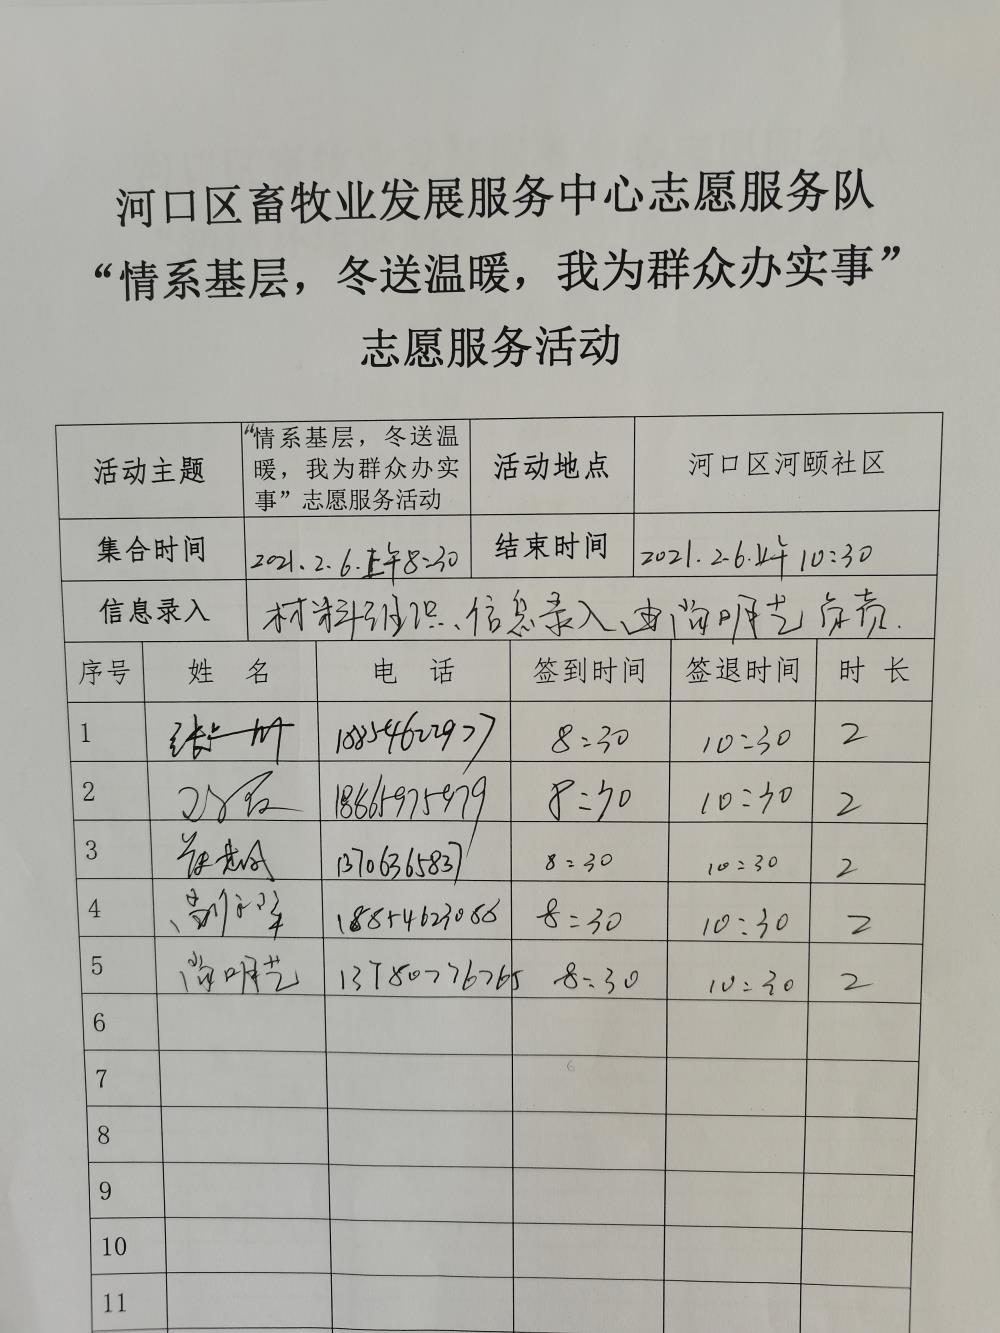 河口区畜牧业发展服务中心志愿服务队
“情系基层，冬送温暖，我为群众办实事”
志愿服务活动
活动主题 “情系基层，冬送温暖，我为群众办实事”志愿服务活动 活动地点 河口区河颐社区
集合时间 2021.2.6.上午8:30 结束时间 2021.2.6.上午10:30
信息录入 材料组织、信息录入由尚明芝负责.
序号 姓 名 电 话 签到时间 签退时间 时 长
1 18854622977 8:30 10:30 2
2 18865975479 8:30 10:30 2
3 13706365837 8:30 10:30 2
4 18854623086 8:30 10:30 2
5 尚明芝 13780776765 8:30 10:30 2
6
7
8
9
10
11